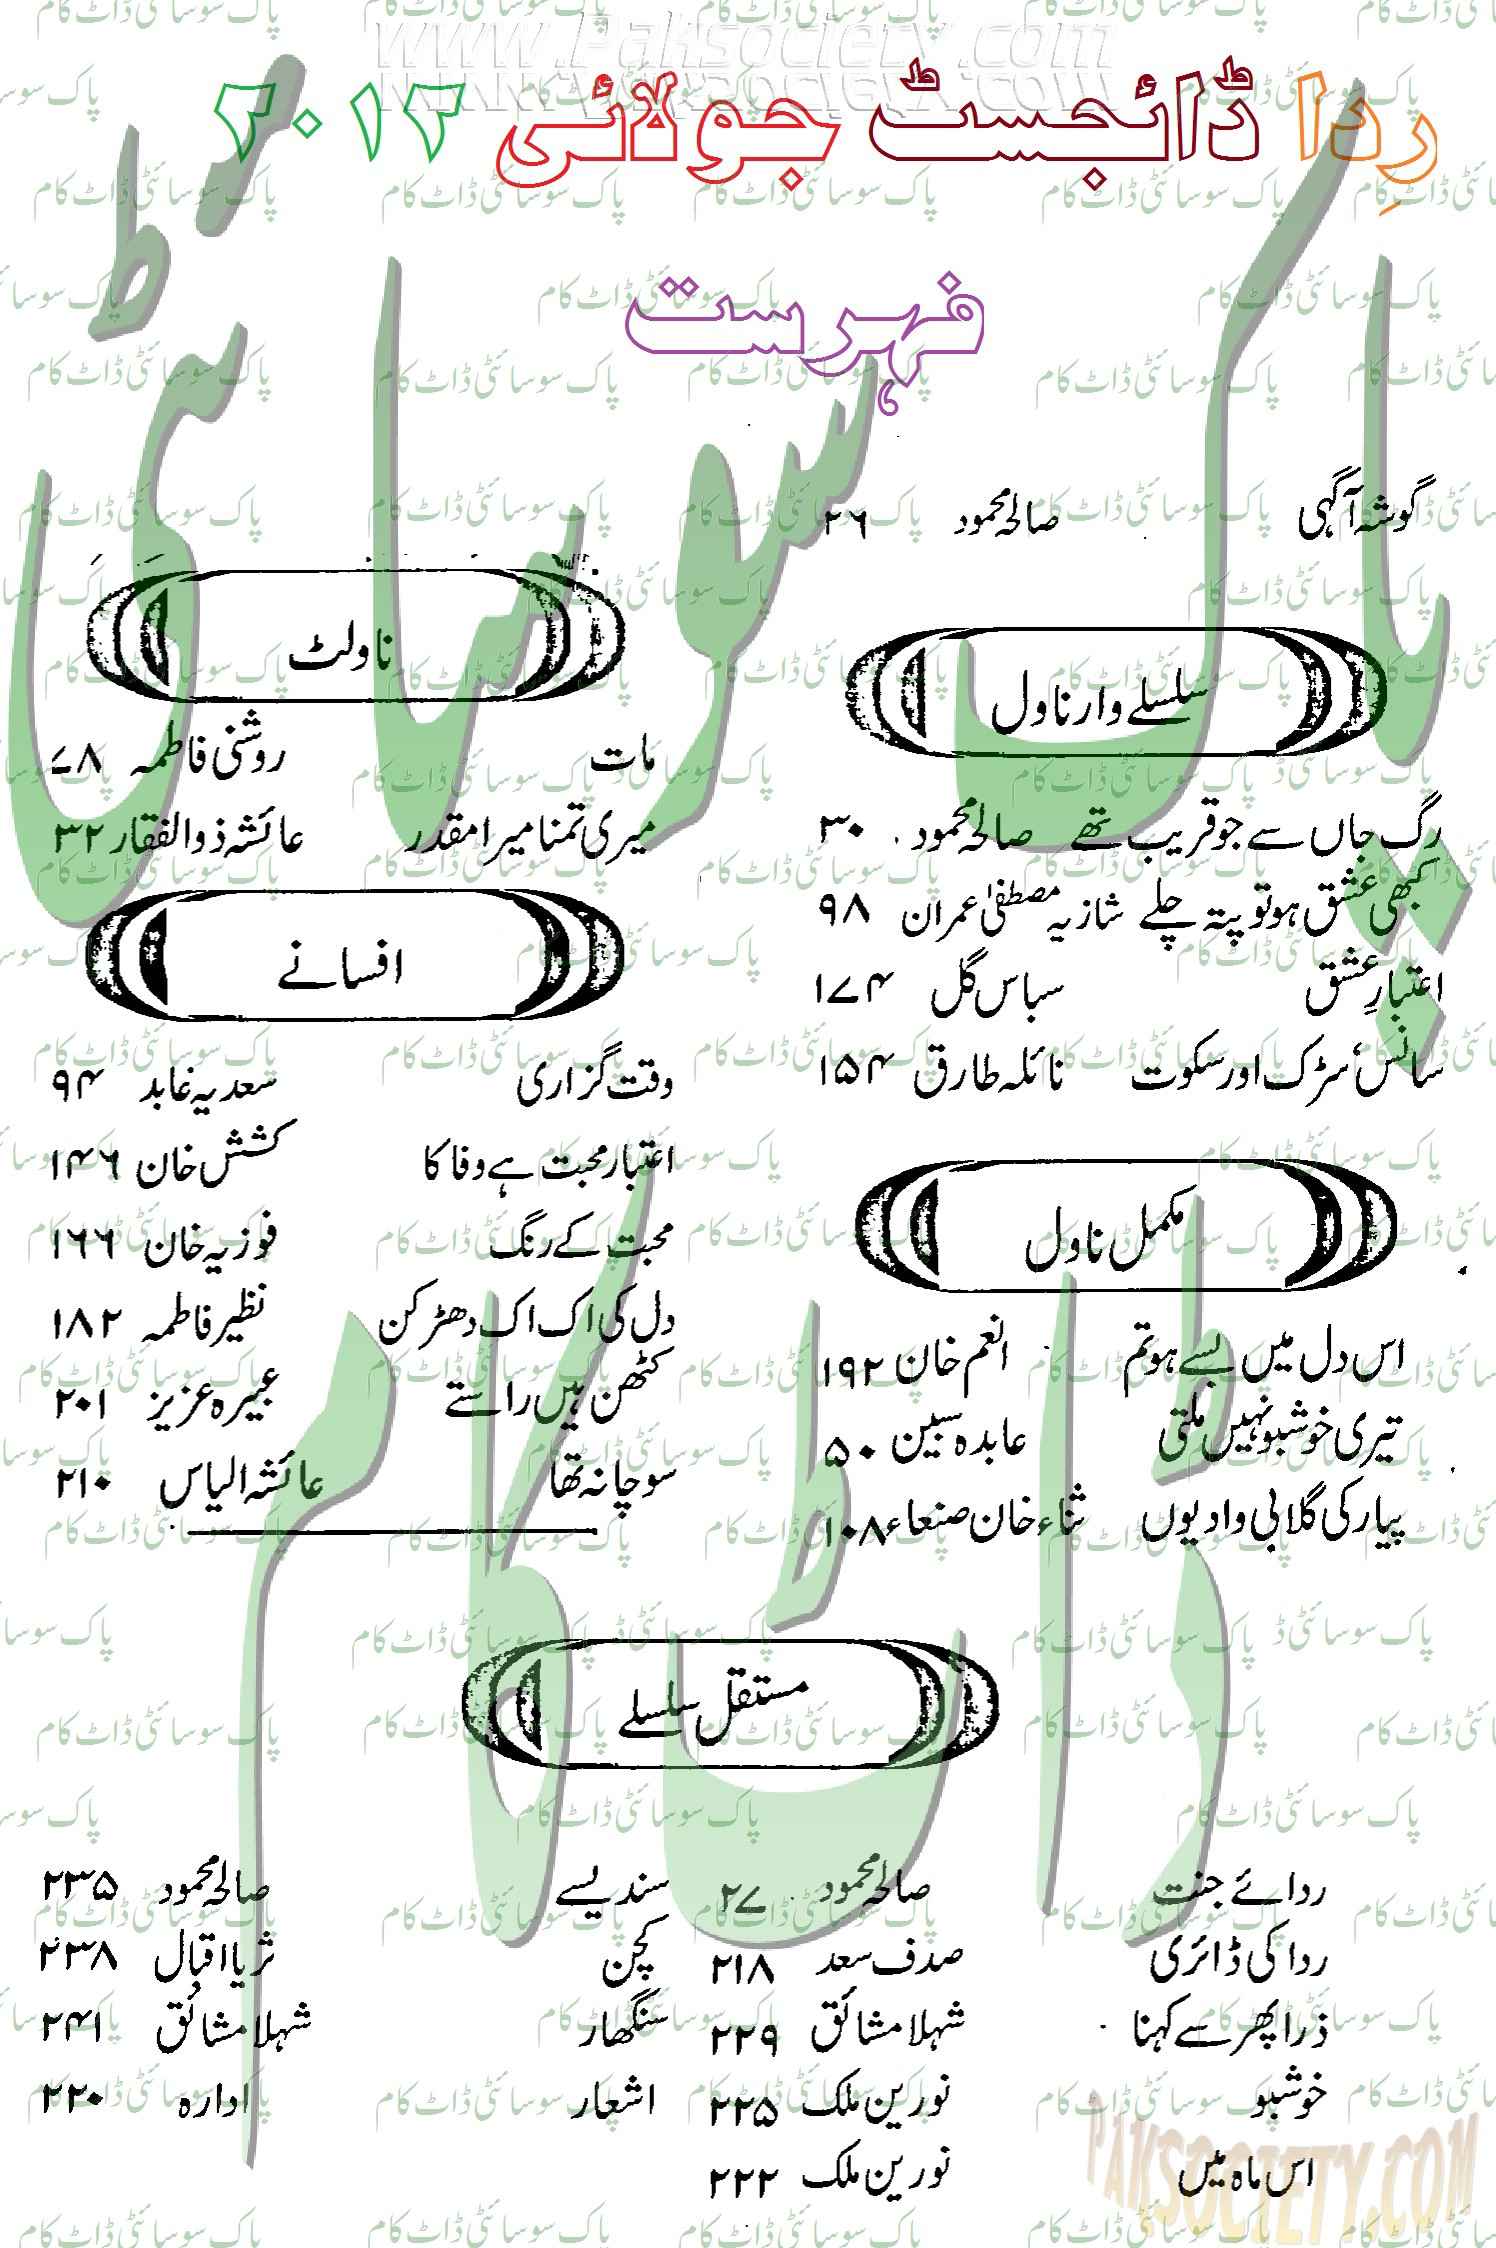 www.Paksociety.com
رِدا ڈائجسٹ جولائی ۲۰۱۲
فہرست
گوشہ آگہی صالحہ محمود ۲۶
سلسلے وار ناول
رگ جاں سے جو قریب تھے صالحہ محمود ۳۰
کبھی عشق ہو تو پتہ چلے شازیہ مصطفیٰ عمران ۹۸
اعتبارِ عشق سباس گل ۱۷۴
سانس سڑک اور سکوت نائلہ طارق ۱۵۴
مکمل ناول
اس دل میں بسے ہو تم انعم خان ۱۹۲
تیری خوشبو نہیں ملتی عابدہ سبین ۵۰
پیار کی گلابی وادیوں ثناء خان صنعاء ۱۰۸
ناولٹ
مات روشنی فاطمہ ۷۸
میری تمنا میرا مقدر عائشہ ذوالفقار ۳۲
افسانے
وقت گزاری سعدیہ عابد ۹۴
اعتبار محبت ہے وفا کا کشش خان ۱۴۶
محبت کے رنگ فوزیہ خان ۱۶۶
دل کی اک اک دھڑکن نظیر فاطمہ ۱۸۲
کٹھن ہیں راستے عبیرہ عزیز ۲۰۱
سوچا نہ تھا عائشہ الیاس ۲۱۰
مستقل سلسلے
ردائے جنت صالحہ محمود ۲۷
ردا کی ڈائری صدف سعد ۲۱۸
ذرا پھر سے کہنا شہلا مشائق ۲۲۹
خوشبو نورین ملک ۲۲۵
اس ماہ میں نورین ملک ۲۲۲
سندیسے صالحہ محمود ۲۳۵
کچن ثریا اقبال ۲۳۸
سنگھار شہلا مشائق ۲۴۱
اشعار ادارہ ۲۲۰
پاک سوسائٹی ڈاٹ کام
PAKSOCIETY.COM